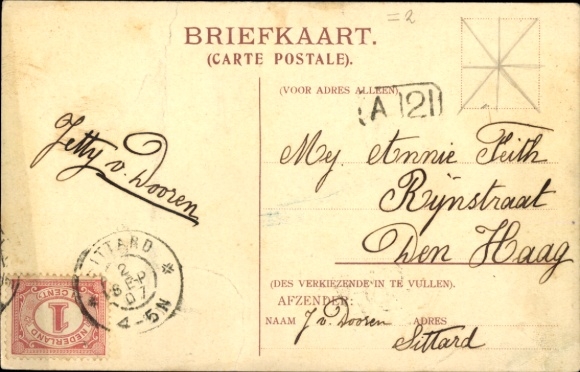 =2
BRIEFKAART.
(CARTE POSTALE).
(VOOR ADRES ALLEEN).
A 21
Jetty v. Dooren
Mej. Annie Feith
Rijnstraat
Den Haag
(DES VERKIEZENDE IN TE VULLEN).
AFZENDER:
NAAM J v. Dooren ADRES
Sittard
SITTARD
4-5N
NEDERLAND
1
CENT